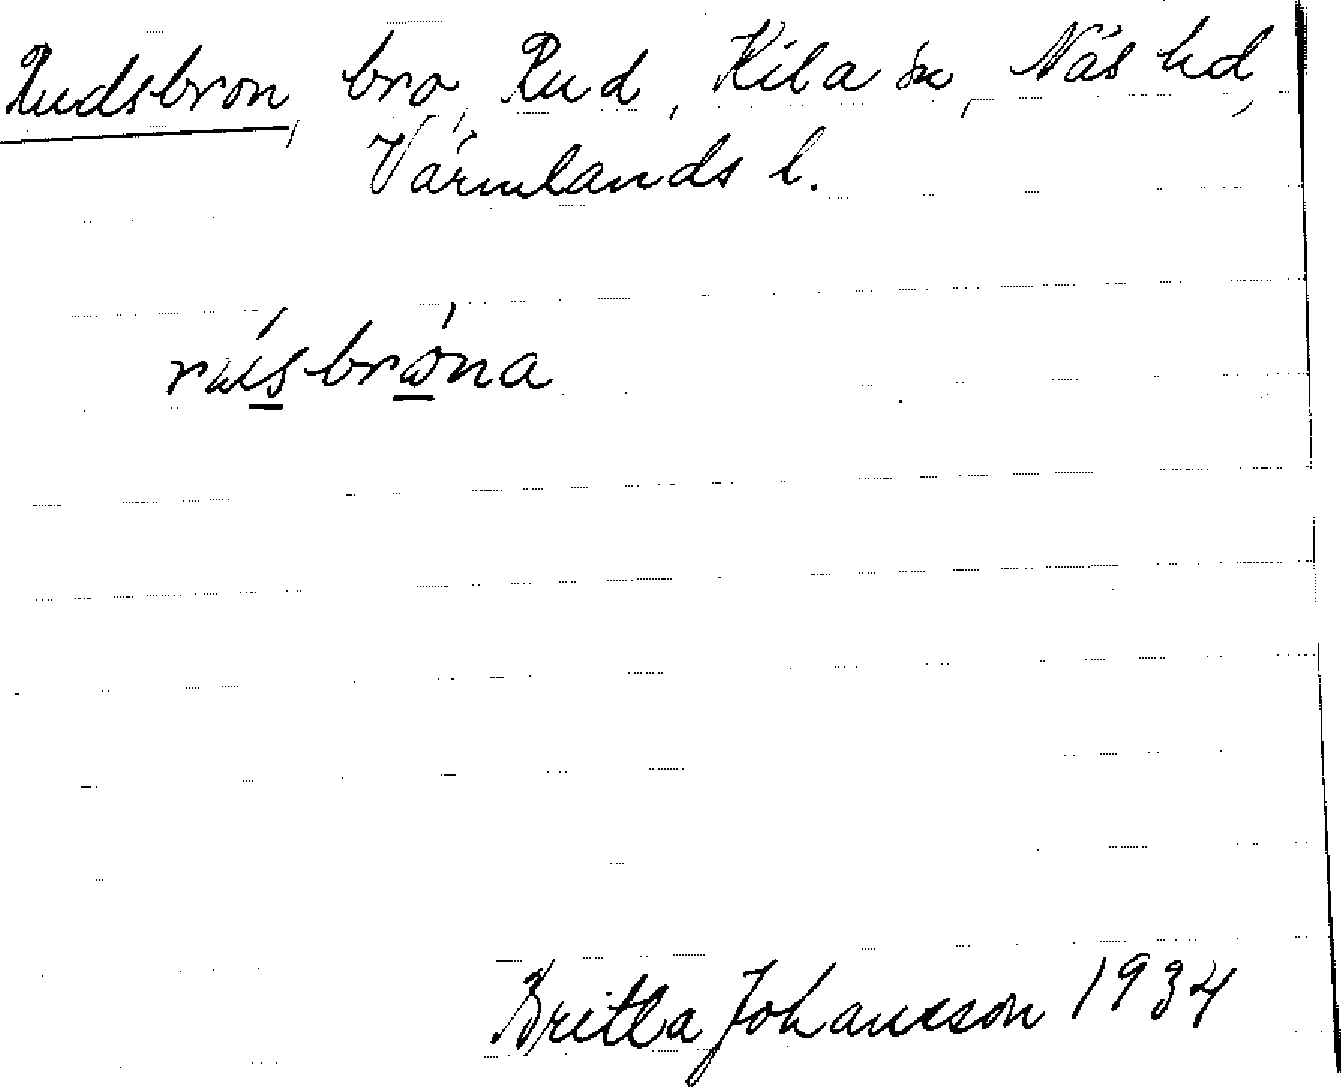 Rudsbron, bro, Rud, Kila sn, Näs hd,
Värmlands l.
Britta Johansson 1934